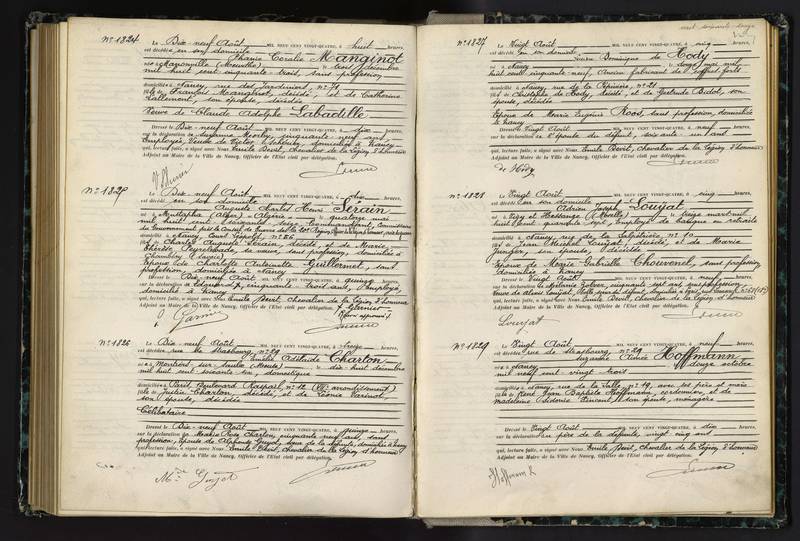 N° 1824
Le Dix-neuf Août MIL NEUF CENT VINGT-QUATRE, à huit heures,
est décédée en son domicile
Marie Coralie Manginot
née à Manonville (Meurthe) le trois décembre
mil huit cent cinquante trois, sans profession
domiciliée à Nancy, rue des Jardiniers, n° 71
fille de François Manginot, décédé, et de Catherine
Lallement, son épouse, décédée
Veuve de Claude Adolphe Labactille
Dressé le Dix-neuf Août, MIL NEUF CENT VINGT-QUATRE, à dix heures,
sur la déclaration de cinquante neuf ans,
employée, Veuve de Victor domiciliée à Nancy
qui, lecture faite, a signé avec Nous Emile Bevit, Chevalier de la Légion d'honneur
Adjoint au Maire de la Ville de Nancy, Officier de l'Etat civil par délégation.
N° 1825
Le Dix-neuf Août MIL NEUF CENT VINGT-QUATRE, à dix heures,
est décédé en son domicile
Auguste Charles Henri Serain
né à Mustapha (Alger) Algérie le quatorze mai
mil huit cent soixante six, Commandant, Commissaire
du Gouvernement près le Conseil de Guerre de la 20e Région,
domicilié à Nancy, rue n° 26
fils de Charles Auguste Serain, décédé et de Marie
Thérèse Peyssabade, sa veuve, sans profession, domiciliée à
Chambéry (Savoie)
Epoux de Charlotte Antoinette Guillermet, sans
profession, domiciliée à Nancy
Dressé le Dix-neuf Août, MIL NEUF CENT VINGT-QUATRE, à quinze heures,
sur la déclaration de cinquante trois ans, Employé,
domicilié à Nancy
qui, lecture faite, a signé avec Nous Emile Bevit, Chevalier de la Légion d'honneur
Adjoint au Maire de la Ville de Nancy, Officier de l'Etat civil par délégation.
N° 1826
Le Dix-neuf Août MIL NEUF CENT VINGT-QUATRE, à treize heures,
est décédée rue de Strasbourg, n° 29
Adélaïde Charton
née à Montiers-sur-Saulx (Meuse) le dix-huit décembre
mil huit cent soixante six, domestique
domiciliée à Paris, Boulevard Raspail, n° 12 (VIIe arrondissement)
fille de Justin Charton, décédé, et de Léonie Varinot,
son épouse, décédée
Célibataire
Dressé le Dix-neuf Août MIL NEUF CENT VINGT-QUATRE, à quinze heures,
sur la déclaration de Marie Rose Charton, cinquante neuf ans, sans
profession, épouse de Alphonse Guyot, sœur de la défunte, domiciliée à Nancy
qui, lecture faite, a signé avec Nous Emile Bevit, Chevalier de la Légion d'honneur
Adjoint au Maire de la Ville de Nancy, Officier de l'Etat civil par délégation.
N° 1827
Le Vingt Août MIL NEUF CENT VINGT-QUATRE, à cinq heures,
est décédé en son domicile
Dominique de Hody
né à Nancy le douze mai mil
huit cent cinquante-neuf, Ancien fabricant de coffres forts
domicilié à Nancy, rue de la Pépinière, n° 21
fils de Christophe de Hody, décédé, et de Gertrude Bidot, son
épouse, décédée
Epoux de Marie Eugénie Roos, sans profession, domiciliée
à Nancy
Dressé le Vingt Août MIL NEUF CENT VINGT-QUATRE, à neuf heures,
sur la déclaration de l'épouse du défunt, soixante un ans
qui, lecture faite, a signé avec Nous Emile Bevit, Chevalier de la Légion d'honneur
Adjoint au Maire de la Ville de Nancy, Officier de l'Etat civil par délégation.
de Hody
N° 1828
Le Vingt Août MIL NEUF CENT VINGT-QUATRE, à cinq heures,
est décédé en son domicile
Adrien Joseph Louzat
né à (Moselle) le treize mars mil
huit cent quarante sept, Employé de banque en retraite
domicilié à Nancy, rue de la Salpêtrière, n° 10
fils de Jean Michel Louzat, décédé, et de Marie
son épouse, décédée
Epoux de Marie Gabrielle Chouvenel, sans profession,
domiciliée à Nancy
Dressé le Vingt Août MIL NEUF CENT VINGT-QUATRE, à neuf heures,
sur la déclaration de cinquante sept ans, sans profession,
qui, lecture faite, a signé avec Nous Emile Bevit, Chevalier de la Légion d'honneur
Adjoint au Maire de la Ville de Nancy, Officier de l'Etat civil par délégation.
Louzat
N° 1829
Le Vingt Août MIL NEUF CENT VINGT-QUATRE, à neuf heures,
est décédée rue de Strasbourg, n° 29
Suzanne Aimée Hoffmann
née à Nancy le douze octobre
mil neuf cent vingt trois
domiciliée à Nancy, rue de la Salle, n° 19, avec ses père et mère
fille de René Jean Baptiste Hoffmann, cordonnier, et de
Madeleine Sidonie Pincent, son épouse, ménagère
Dressé le Vingt Août MIL NEUF CENT VINGT-QUATRE, à dix heures,
sur la déclaration du père de la défunte, vingt cinq ans
qui, lecture faite, a signé avec Nous Emile Bevit, Chevalier de la Légion d'honneur
Adjoint au Maire de la Ville de Nancy, Officier de l'Etat civil par délégation.
Hoffmann R